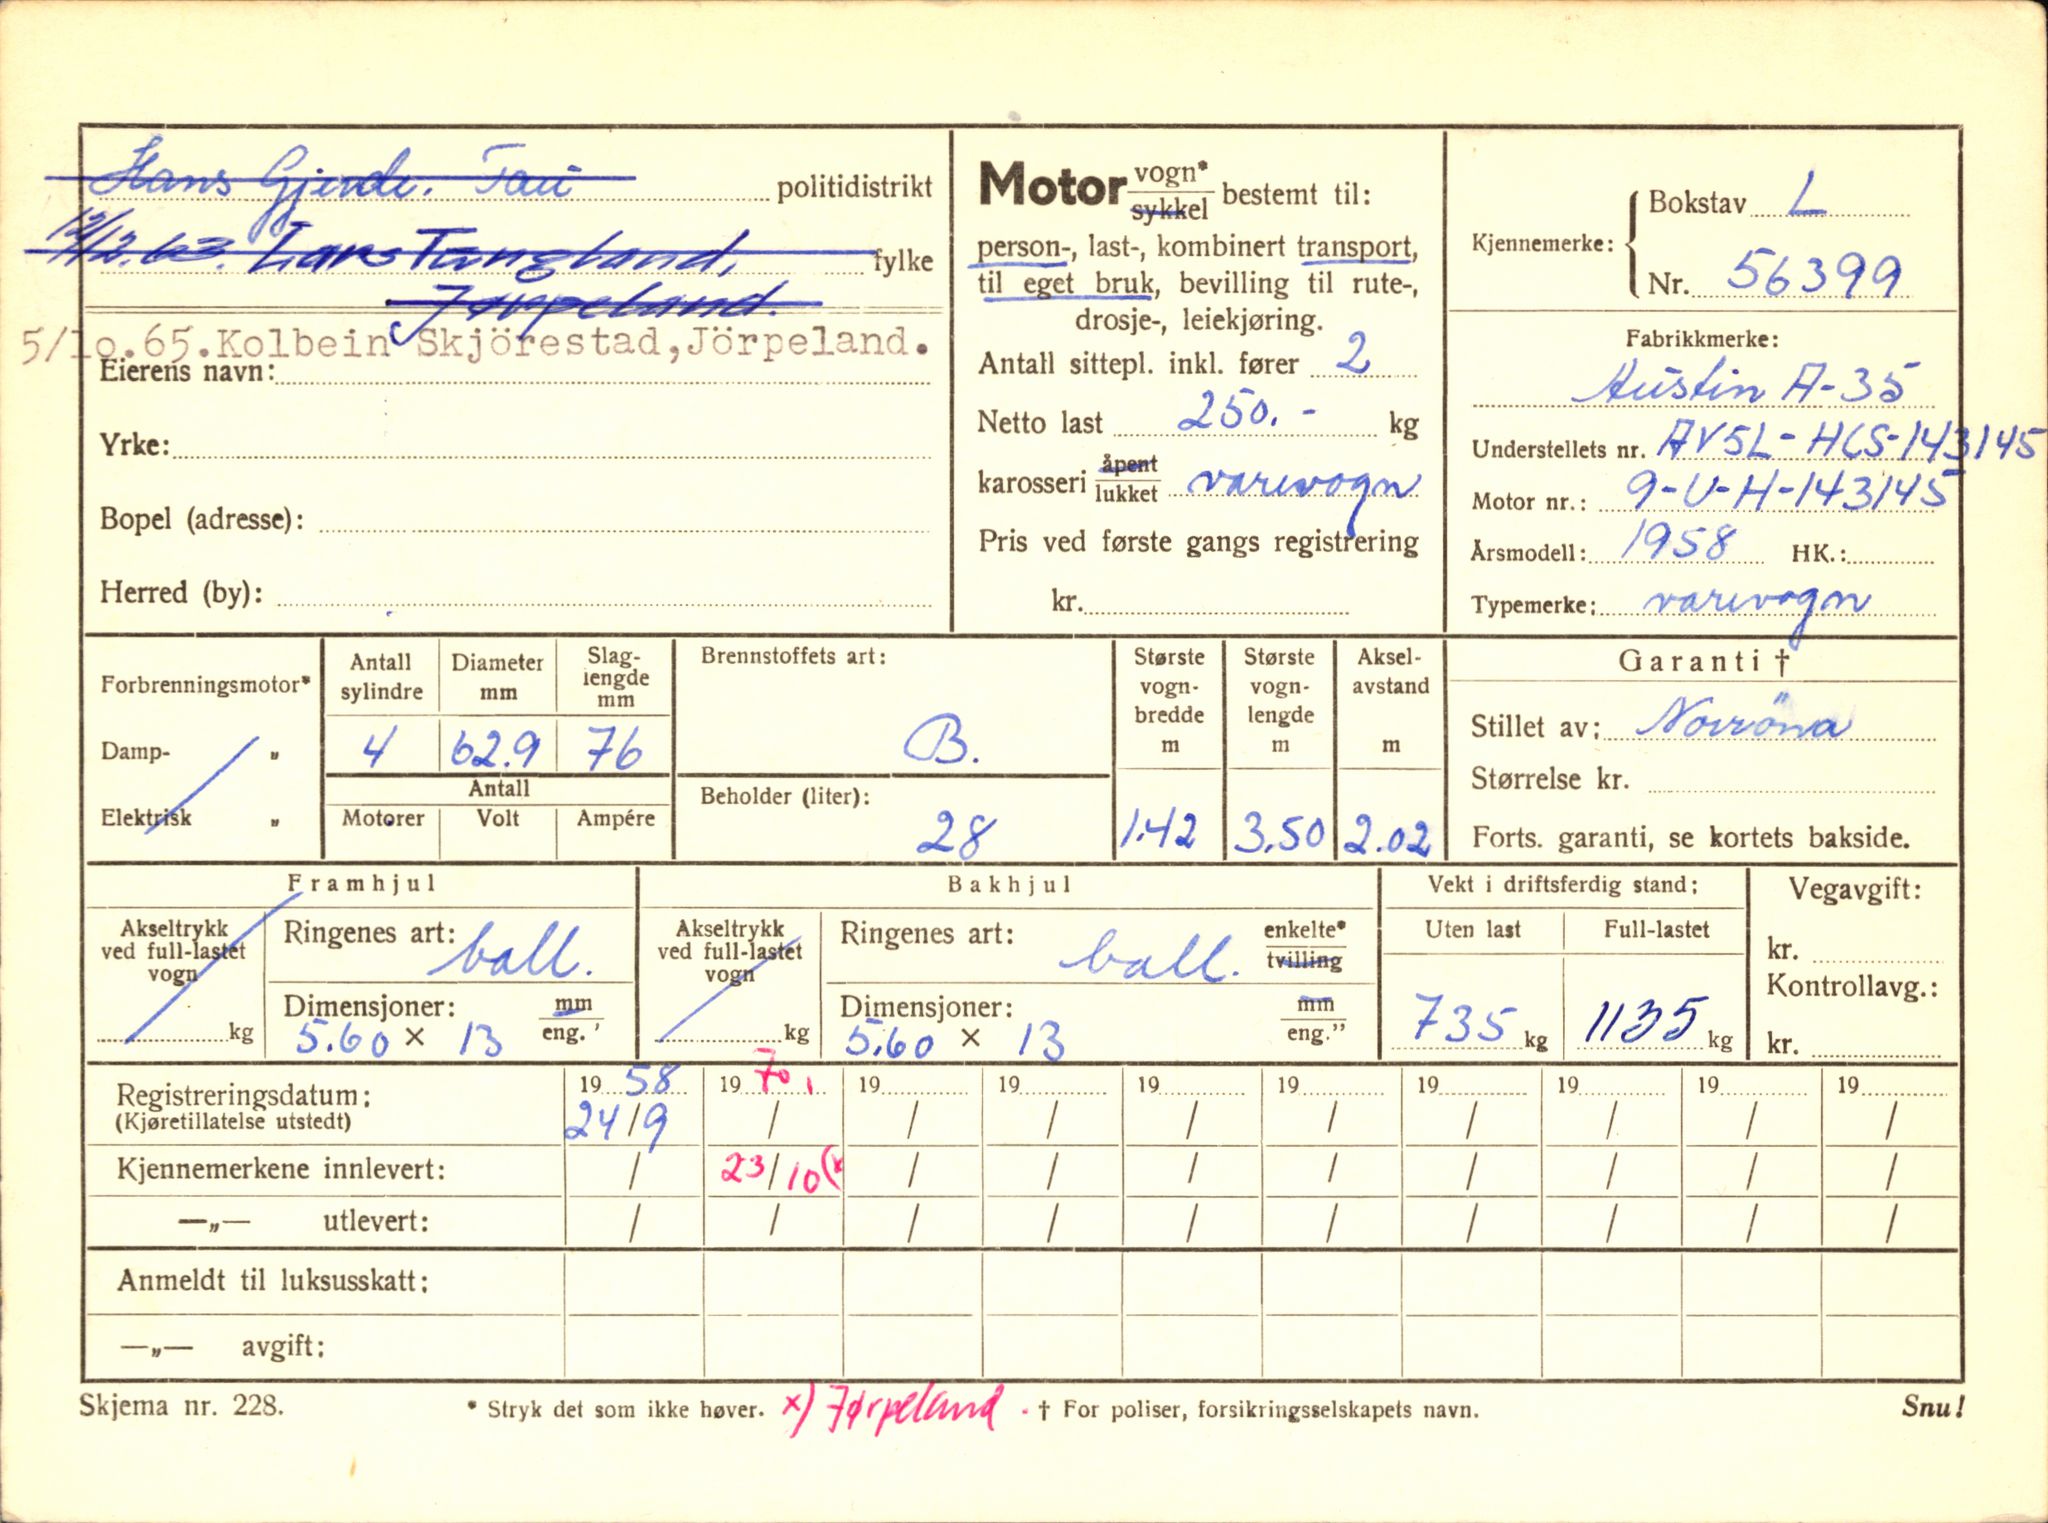 Hans Gjerde. Tau politidistrikt
12/12.63. Lars Tungland, fylke
Jørpeland.
5/10.65. Kolbein Skjörestad, Jörpeland.
Eierens navn:
Yrke:
Bopel (adresse):
Herred (by):
Motor vogn* sykkel bestemt til:
person-, last-, kombinert transport,
til eget bruk, bevilling til rute-,
drosje-, leiekjøring.
Antall sittepl. inkl. fører 2
Netto last 250.- kg
karosseri åpent lukket varevogn
Pris ved første gangs registrering
kr.
Kjennemerke: Bokstav L
Nr. 56399
Fabrikkmerke:
Austin A-35
Understellets nr. AV5L-HCS-143145
Motor nr.: 9-U-H-143145
Årsmodell: 1958 HK.:
Typemerke: varevogn
Forbrenningsmotor*
Damp- „
Elektrisk „
Antall sylindre
Diameter mm
Slaglengde mm
4 62.9 76
Antall
Motorer Volt Ampére
Brennstoffets art:
B.
Beholder (liter):
28
Største vogn-bredde m
1.42
Største vogn-lengde m
3.50
Aksel-avstand m
2.02
Garanti †
Stillet av: Norröna
Størrelse kr.
Forts. garanti, se kortets bakside.
Framhjul
Akseltrykk ved full-lastet vogn kg
Ringenes art: ball.
Dimensjoner: mm eng."
5.60 × 13
Bakhjul
Akseltrykk ved full-lastet vogn kg
Ringenes art: ball. enkelte* tvilling
Dimensjoner: mm eng."
5.60 × 13
Vekt i driftsferdig stand:
Uten last Full-lastet
735 kg 1135 kg
Vegavgift:
kr.
Kontrollavg.:
kr.
Registreringsdatum: 19 58 19 70 19 19 19 19 19 19 19 19
(Kjøretillatelse utstedt) 24/9 / / / / / / / / /
Kjennemerkene innlevert: / 23/10 (x / / / / / / / /
—„— utlevert: / / / / / / / / / /
Anmeldt til luksusskatt:
—„— avgift:
Skjema nr. 228. * Stryk det som ikke høver. x) Jørpeland. † For poliser, forsikringsselskapets navn. Snu!